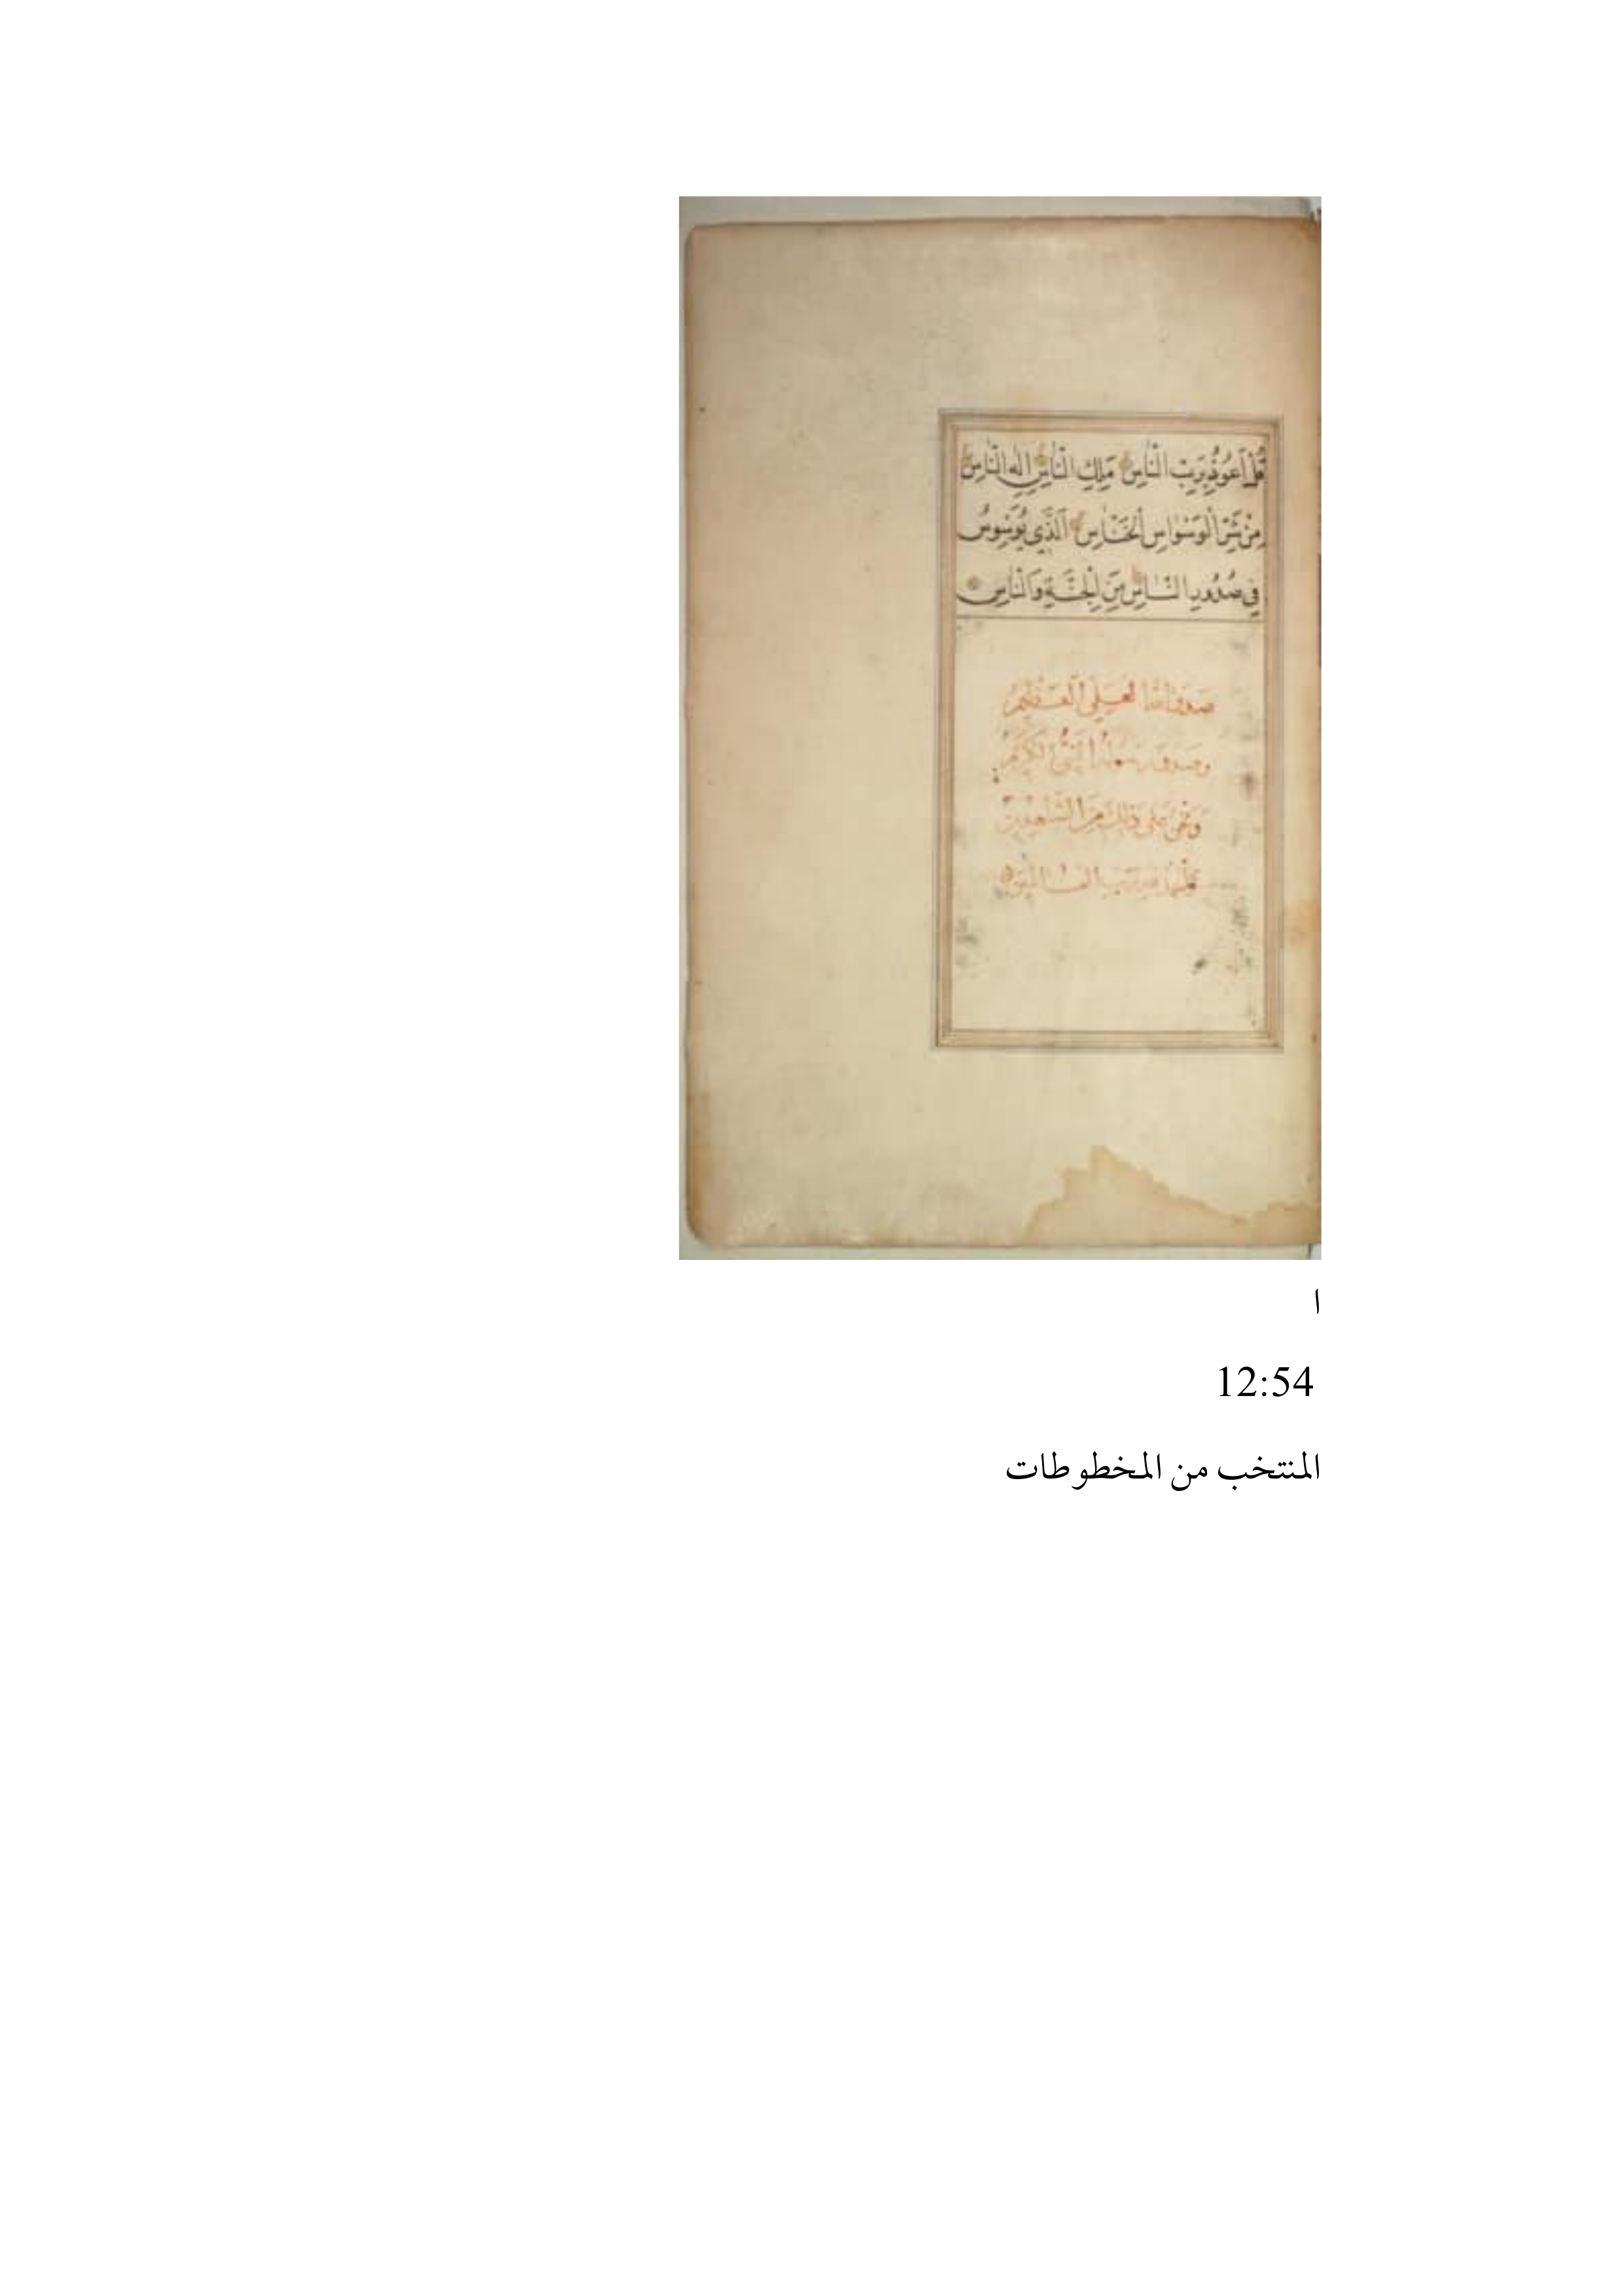 قُلْ أَعُوذُ بِرَبِّ النَّاسِ مَلِكِ النَّاسِ اِلٰهِ النَّاسِ
مِنْ شَرِّ الْوَسْوَاسِ الْخَنَّاسِ اَلَّذِي يُوَسْوِسُ
فِي صُدُورِ النَّاسِ مِنَ الْجِنَّةِ وَالنَّاسِ
صدق الله العلي العظيم
وصدق رسوله النبي الكريم
ونحن على ذلك من الشاهدين
والحمد لله رب العالمين
ا
12:54
المنتخب من المخطوطات